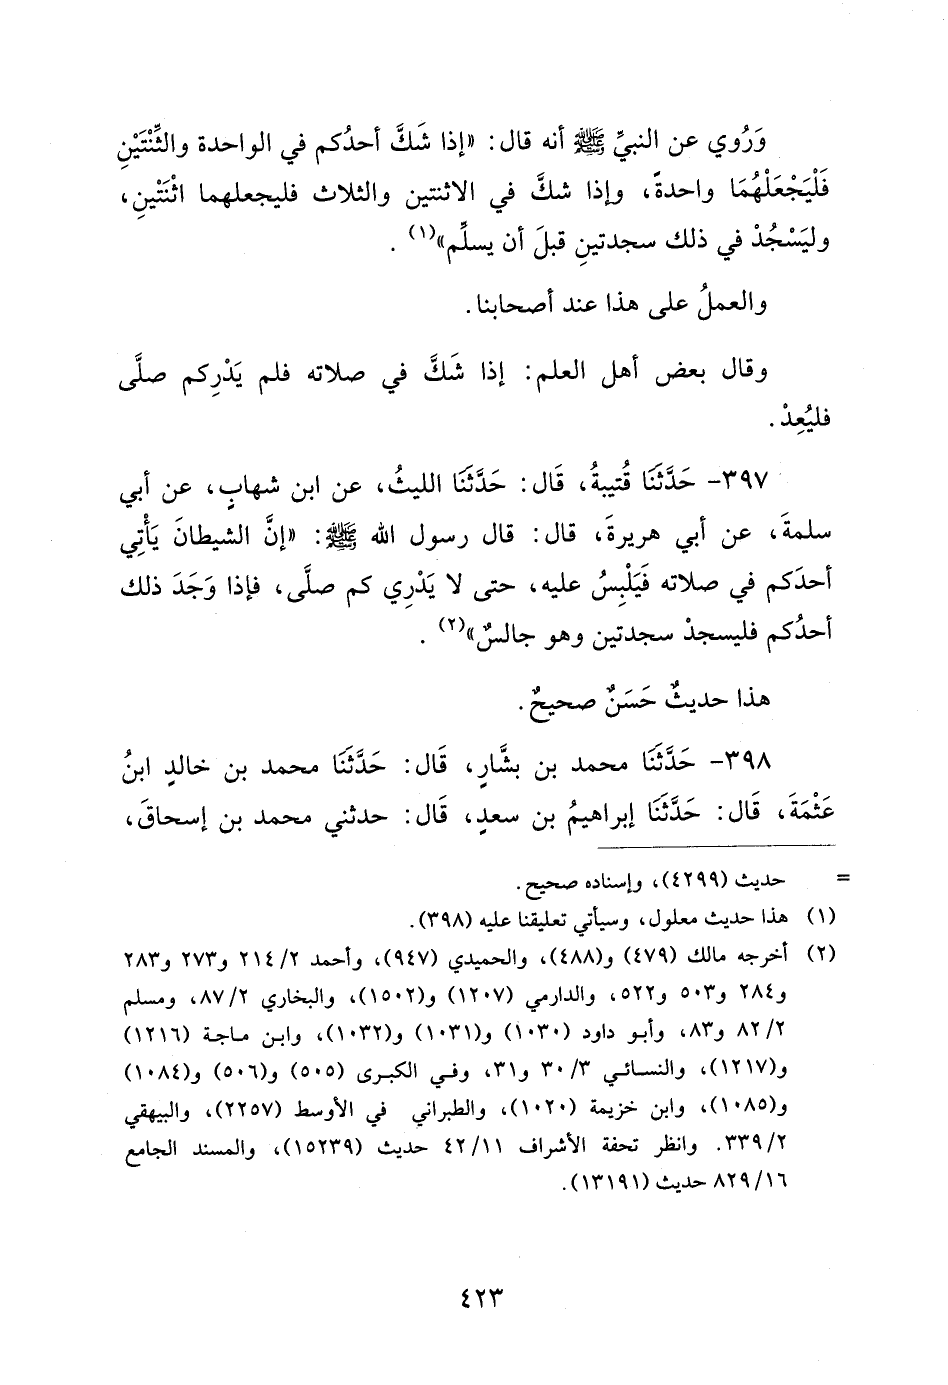 وَرُوي عن النبيِّ ﷺ أنه قال: «إذا شَكَّ أحدُكم في الواحدة والثِّنْتَيْنِ
فَلْيَجْعَلْهُمَا واحدةً، وإذا شكَّ في الاثنتين والثلاث فليجعلهما اثْنَتْينِ،
وليَسْجُدْ في ذلك سجدتينِ قبلَ أن يسلِّم»(١) .
والعملُ على هذا عند أصحابنا.
وقال بعض أهل العلم: إذا شَكَّ في صلاته فلم يَدْرِكم صلَّى
فليُعِدْ.
٣٩٧- حَدَّثَنَا قُتيبةُ، قَال: حَدَّثَنَا الليثُ، عن ابن شهابٍ، عن أبي
سلمةَ، عن أبي هريرةَ، قال: قال رسول الله ﷺ: «إنَّ الشيطانَ يَأْتِي
أحدَكم في صلاته فَيَلْبِسُ عليه، حتى لا يَدْرِي كم صلَّى، فإذا وَجَدَ ذلك
أحدُكم فليسجدْ سجدتين وهو جالسٌ»(٢) .
هذا حديثٌ حَسَنٌ صحيحٌ.
٣٩٨- حَدَّثَنَا محمد بن بشَّارٍ، قَال: حَدَّثَنَا محمد بن خالدٍ ابنُ
عَثْمَةَ، قَال: حَدَّثَنَا إبراهيمُ بن سعدٍ، قَال: حدثني محمد بن إسحاقَ،
= حديث (٤٢٩٩)، وإسناده صحيح.
(١) هذا حديث معلول، وسيأتي تعليقنا عليه (٣٩٨).
(٢) أخرجه مالك (٤٧٩) و(٤٨٨)، والحميدي (٩٤٧)، وأحمد ٢/ ٢١٤ و٢٧٣ و٢٨٣
و٢٨٤ و٥٠٣ و٥٢٢، والدارمي (١٢٠٧) و(١٥٠٢)، والبخاري ٢/ ٨٧، ومسلم
٢/ ٨٢ و٨٣، وأبو داود (١٠٣٠) و(١٠٣١) و(١٠٣٢)، وابن ماجة (١٢١٦)
و(١٢١٧)، والنسائي ٣/ ٣٠ و٣١، وفي الكبرى (٥٠٥) و(٥٠٦) و(١٠٨٤)
و(١٠٨٥)، وابن خزيمة (١٠٢٠)، والطبراني في الأوسط (٢٢٥٧)، والبيهقي
٢/ ٣٣٩. وانظر تحفة الأشراف ١١/ ٤٢ حديث (١٥٢٣٩)، والمسند الجامع
١٦/ ٨٢٩ حديث (١٣١٩١).
٤٢٣